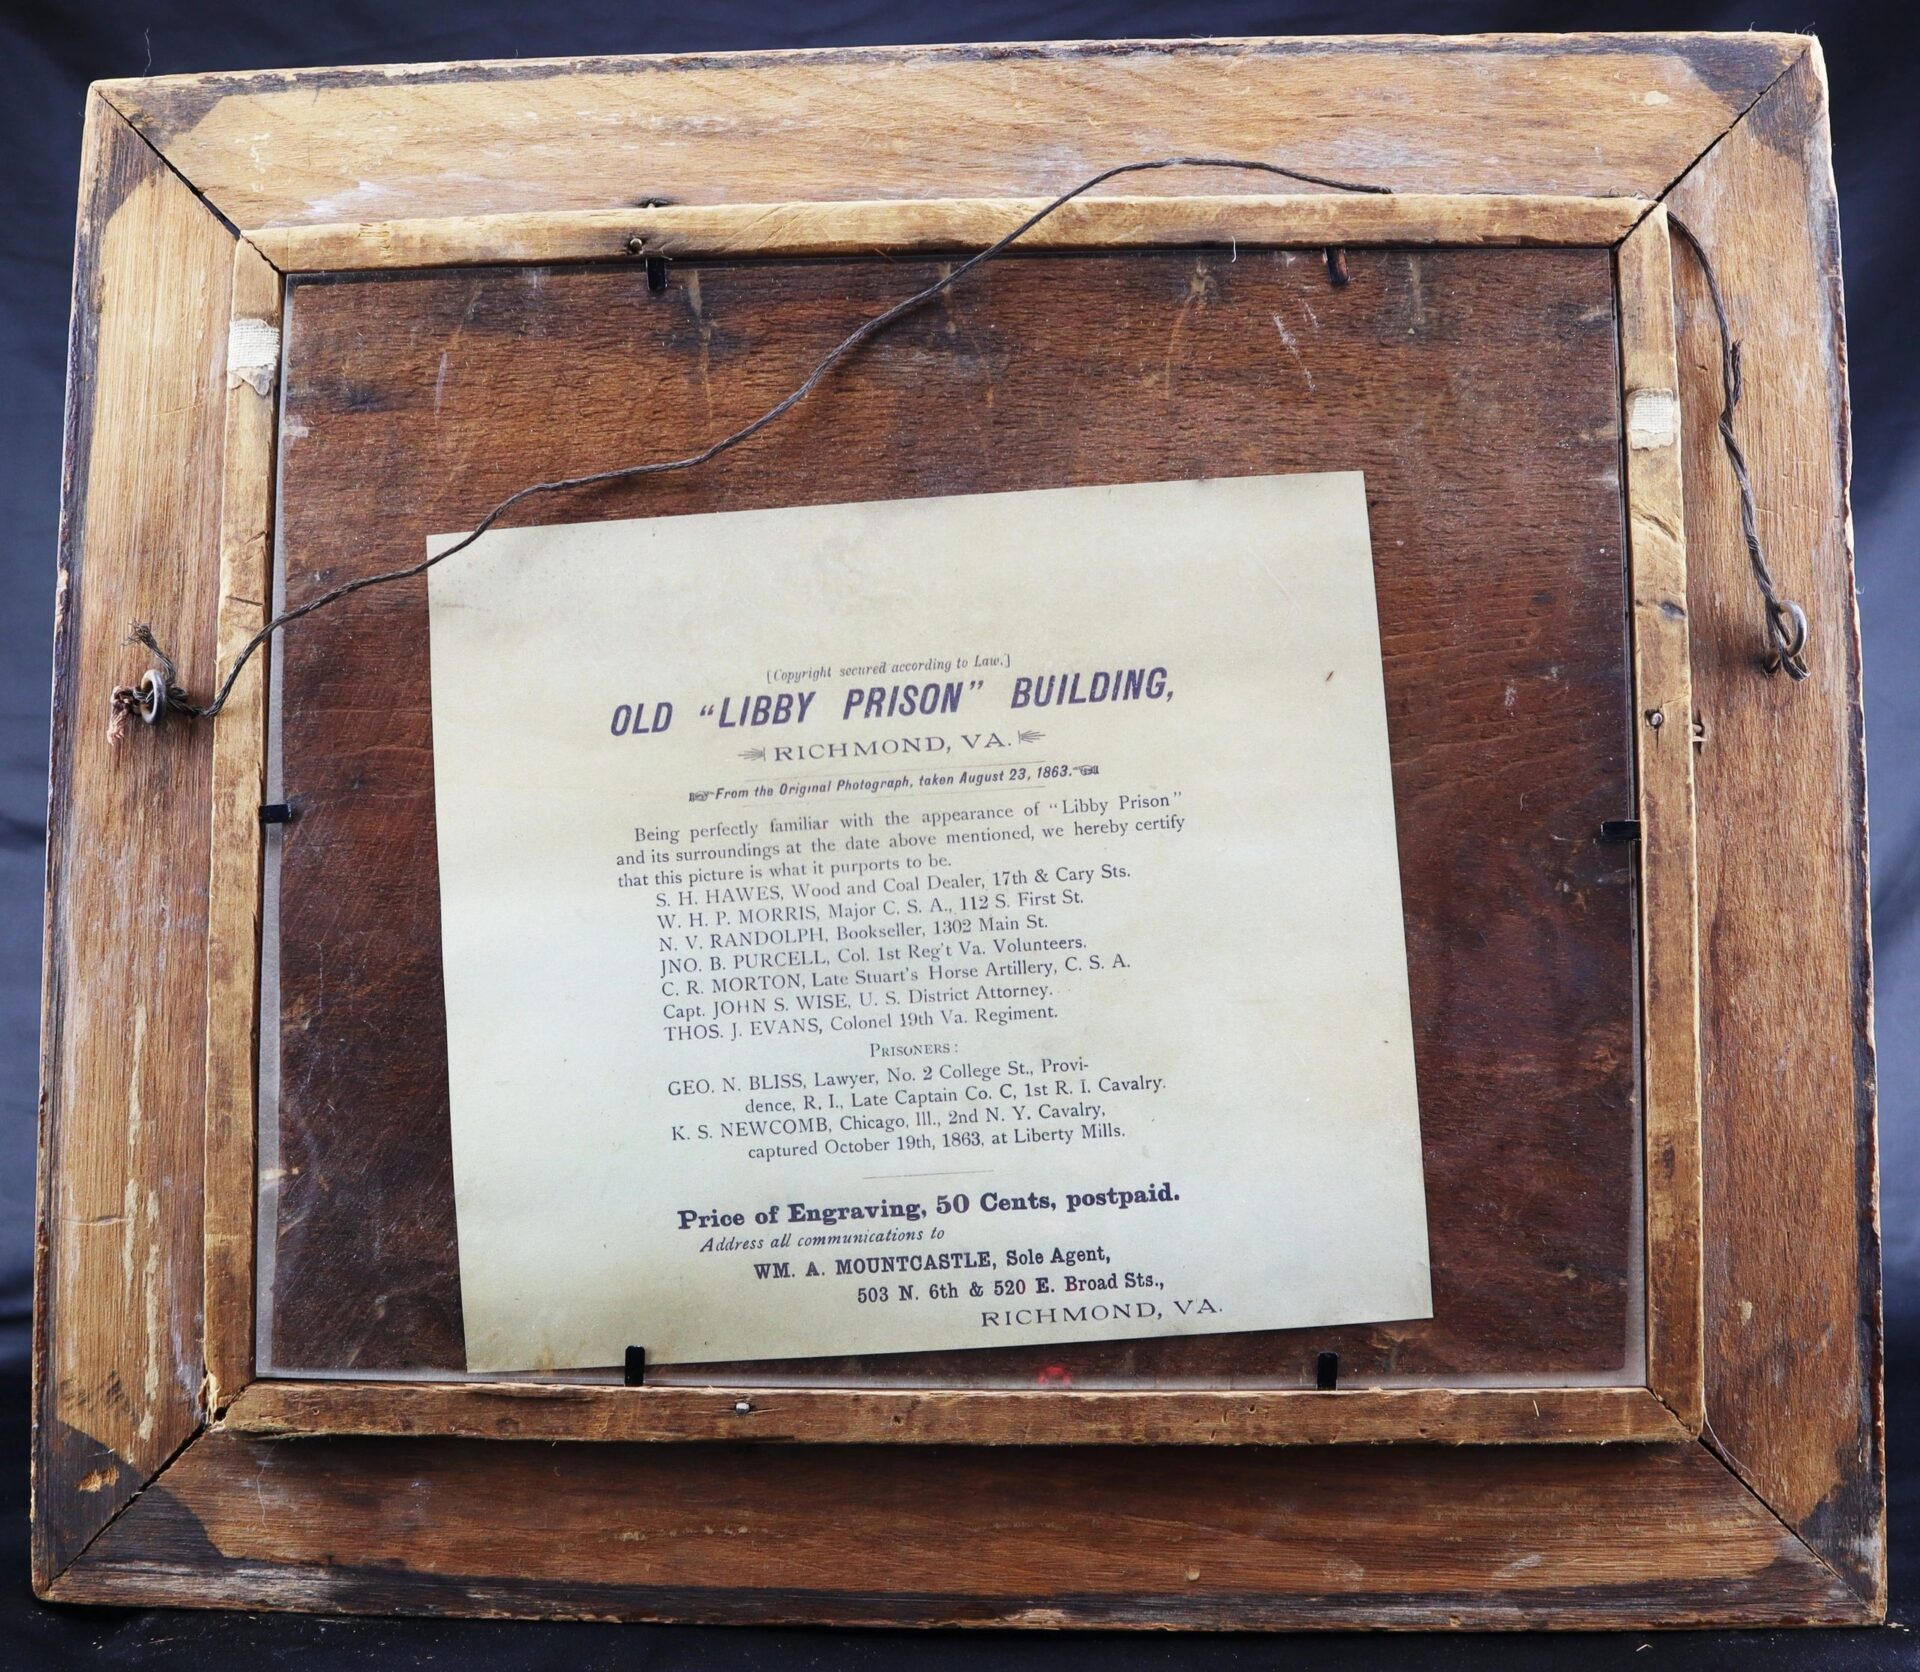 [Copyright secured according to Law.]
OLD “LIBBY PRISON” BUILDING,
RICHMOND, VA.
From the Original Photograph, taken August 23, 1863.
Being perfectly familiar with the appearance of “Libby Prison”
and its surroundings at the date above mentioned, we hereby certify
that this picture is what it purports to be.
S. H. HAWES, Wood and Coal Dealer, 17th & Cary Sts.
W. H. P. MORRIS, Major C. S. A., 112 S. First St.
N. V. RANDOLPH, Bookseller, 1302 Main St.
JNO. B. PURCELL, Col. 1st Reg't Va. Volunteers.
C. R. MORTON, Late Stuart's Horse Artillery, C. S. A.
Capt. JOHN S. WISE, U. S. District Attorney.
THOS. J. EVANS, Colonel 19th Va. Regiment.
PRISONERS:
GEO. N. BLISS, Lawyer, No. 2 College St., Provi-
dence, R. I., Late Captain Co. C, 1st R. I. Cavalry.
K. S. NEWCOMB, Chicago, Ill., 2nd N. Y. Cavalry,
captured October 19th, 1863, at Liberty Mills.
Price of Engraving, 50 Cents, postpaid.
Address all communications to
WM. A. MOUNTCASTLE, Sole Agent,
503 N. 6th & 520 E. Broad Sts.,
RICHMOND, VA.